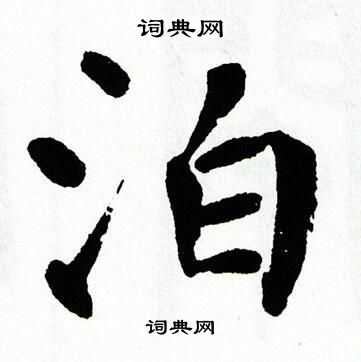 词典网
泊
词典网